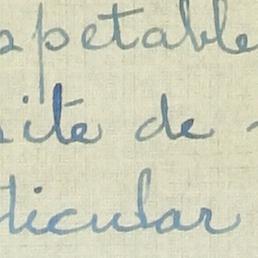 spetable
site de
ticular